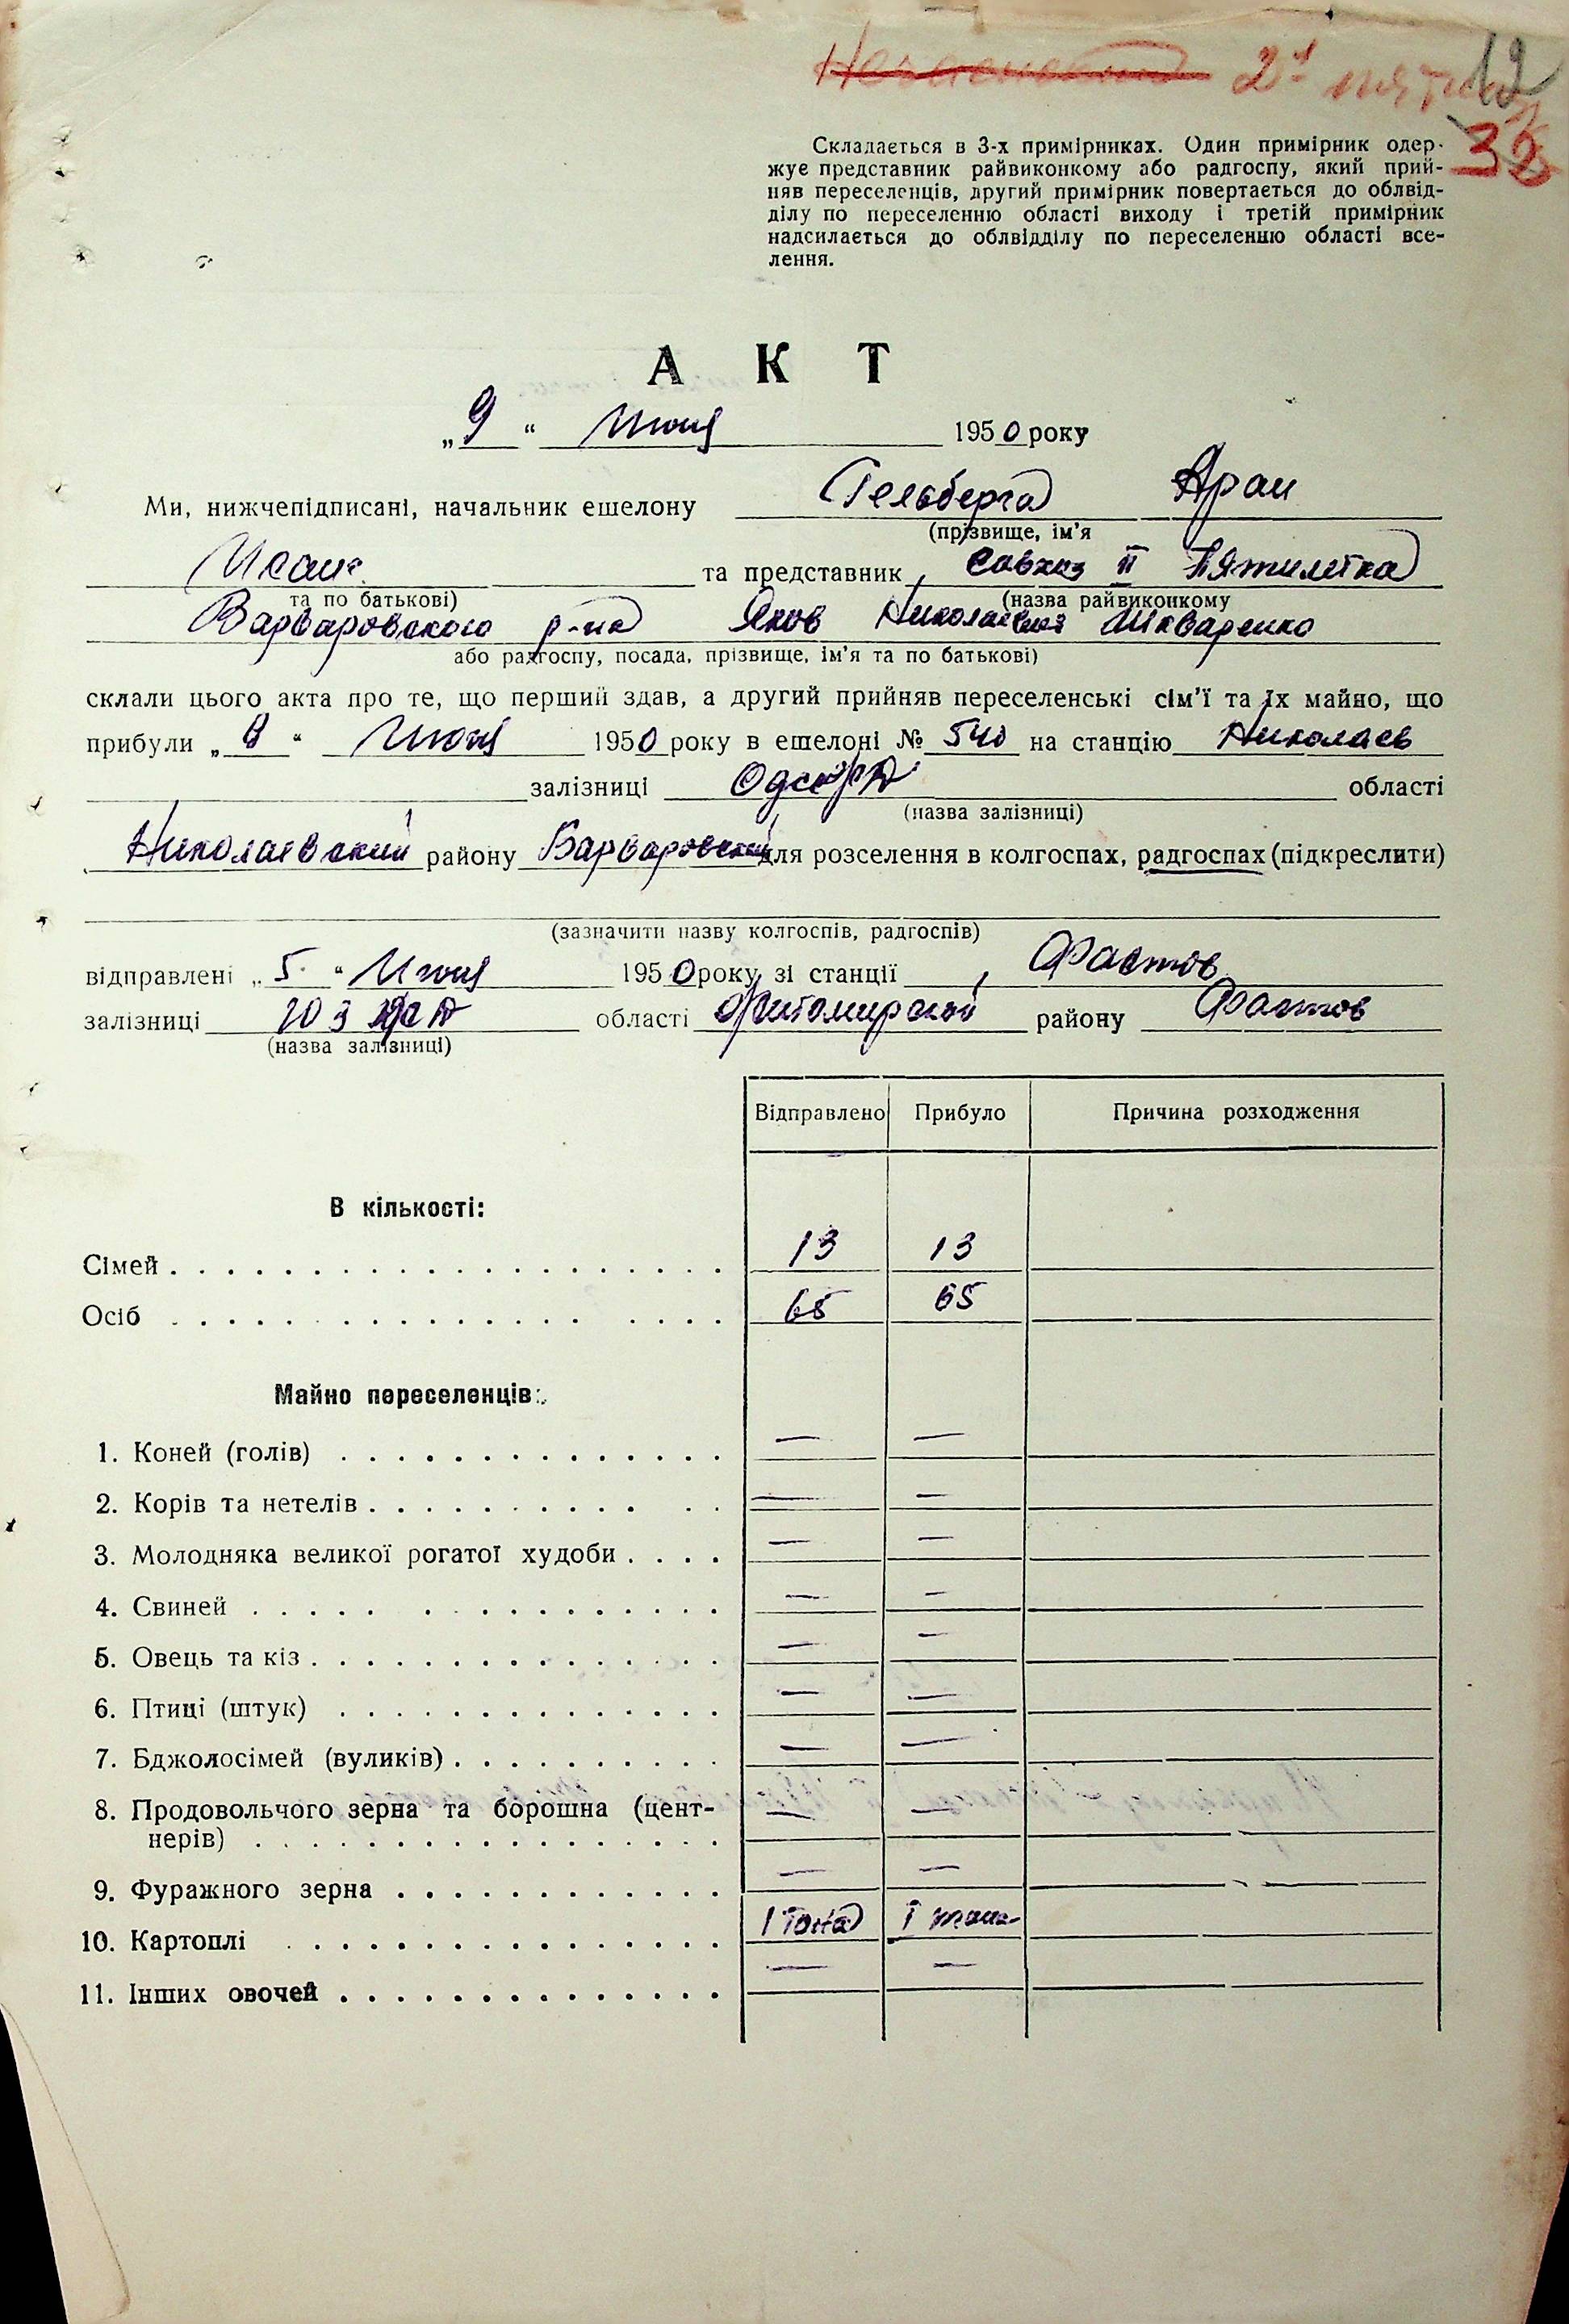 12
Складається в 3-х примірниках. Один примірник одер-
жує представник райвиконкому або радгоспу, який прий-
няв переселенців, другий примірник повертається до облвід-
ділу по переселенню області виходу і третій примірник
надсилається до облвідділу по переселенню області все-
лення.
АКТ
„9“ Июня 1950 року
Ми, нижчепідписані, начальник ешелону Гельберга Арон
(прізвище, ім'я
Исаак та представник совхаз II Пятилетка
та по батькові) (назва райвиконкому
Варваровского р-на Яков Николаевич Шкваренко
або радгоспу, посада, прізвище, ім'я та по батькові)
склали цього акта про те, що перший здав, а другий прийняв переселенські сім'ї та їх майно, що
прибули „8“ Июня 1950 року в ешелоні № 540 на станцію Николаев
залізниці области
(назва залізниці)
Николаевский району Варваровский для розселення в колгоспах, радгоспах (підкреслити)
(зазначити назву колгоспів, радгоспів)
відправлені „5“ Июня 1950 року зі станції Фастов
залізниці ЮЗ області Житомирской району Фастов
(назва залізниці)
Відправлено Прибуло Причина розходження
В кількості:
Сімей 13 13
Осіб 65 65
Майно переселенців:
1. Коней (голів) — —
2. Корів та нетелів — —
3. Молодняка великої рогатої худоби — —
4. Свиней — —
5. Овець та кіз — —
6. Птиці (штук) — —
7. Бджолосімей (вуликів) — —
8. Продовольчого зерна та борошна (цент-
нерів) — —
9. Фуражного зерна — —
10. Картоплі 1 тона 1 тона
11. Інших овочей — —